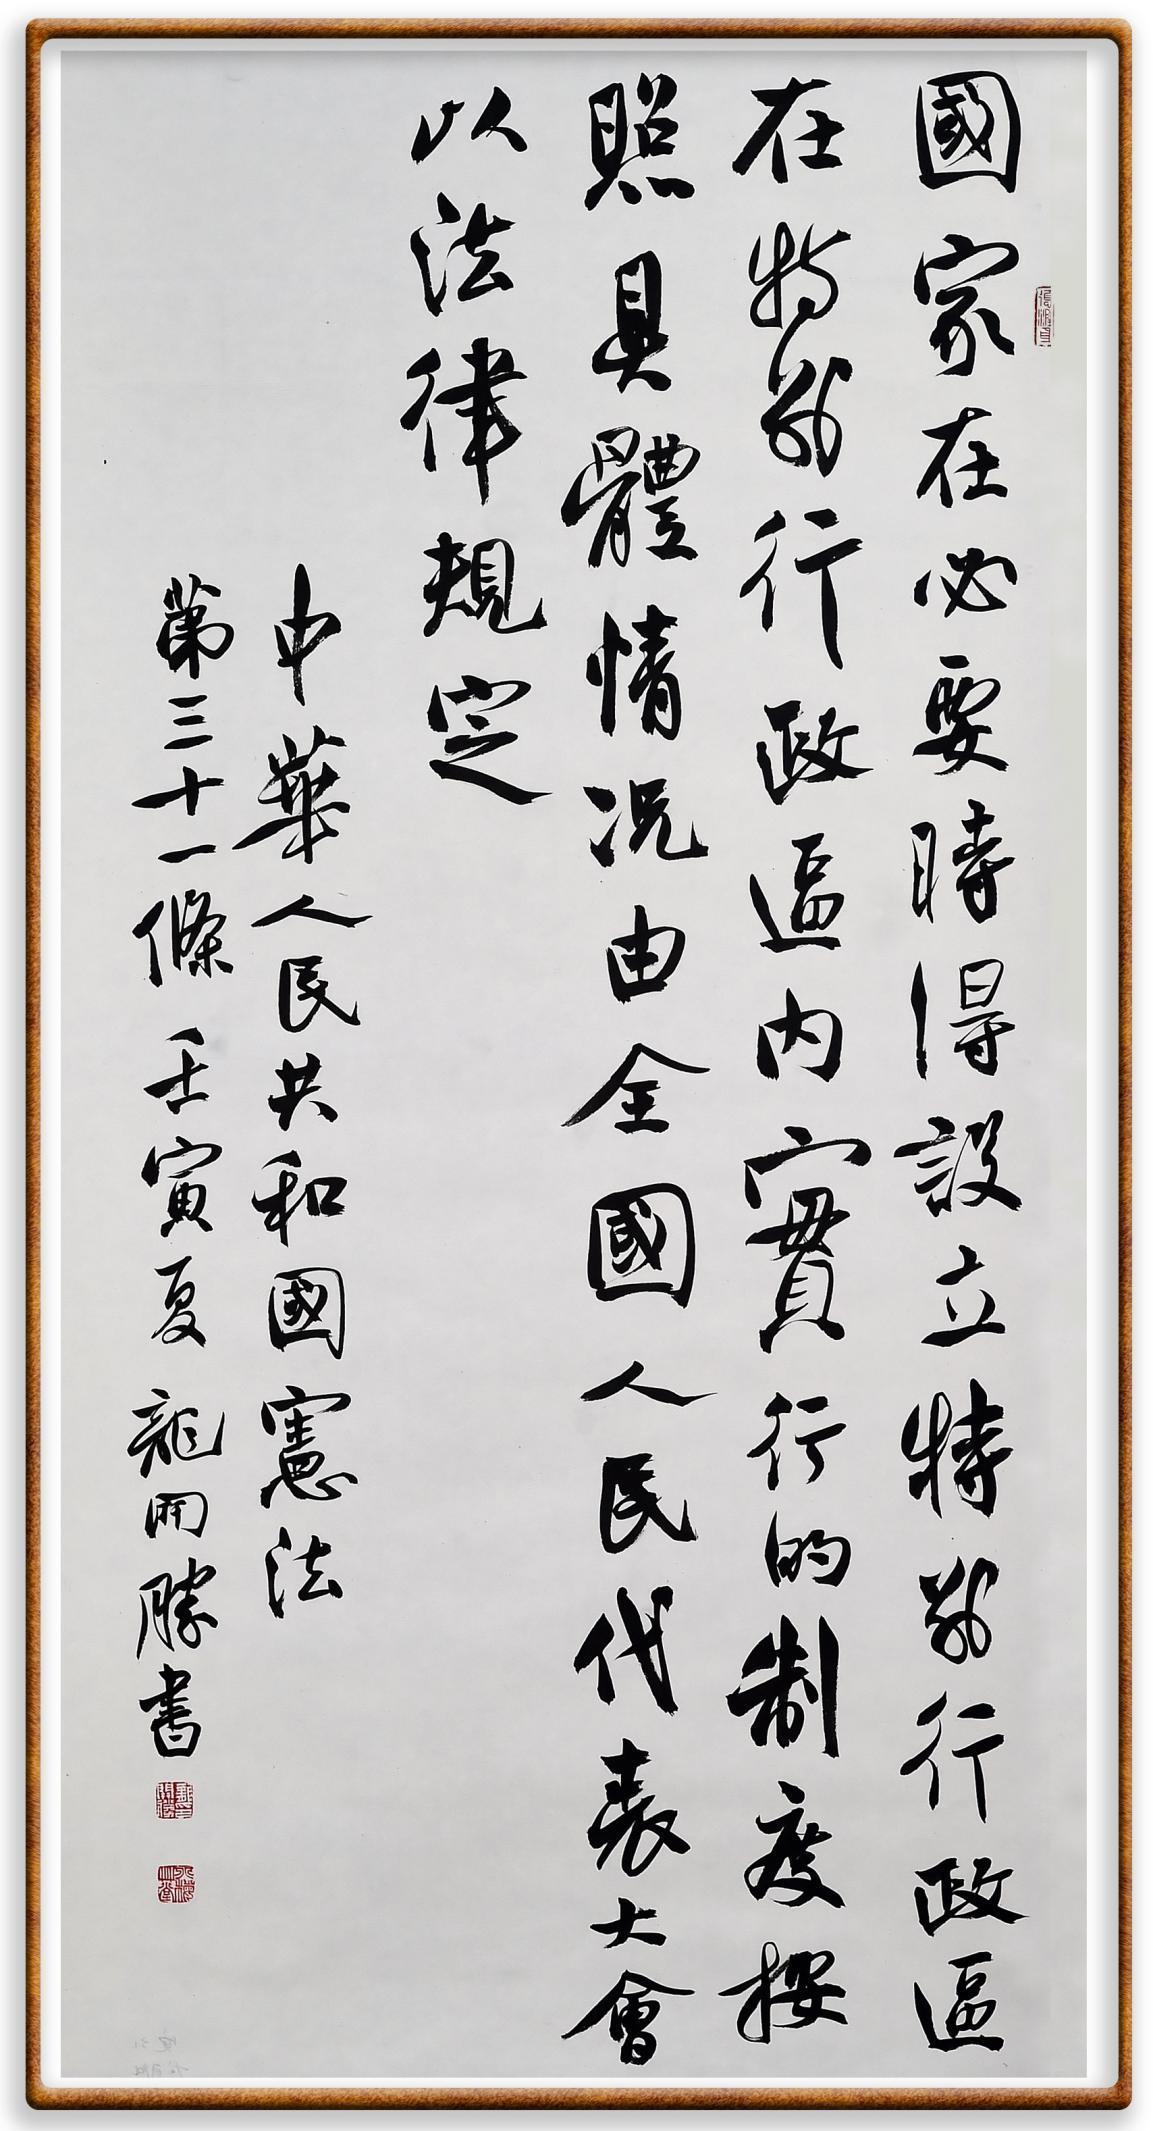 國家在必要時得設立特别行政區
在特别行政區内實行的制度按
照具體情况由全國人民代表大會
以法律規定
中華人民共和國憲法
第三十一條壬寅夏龍開勝書